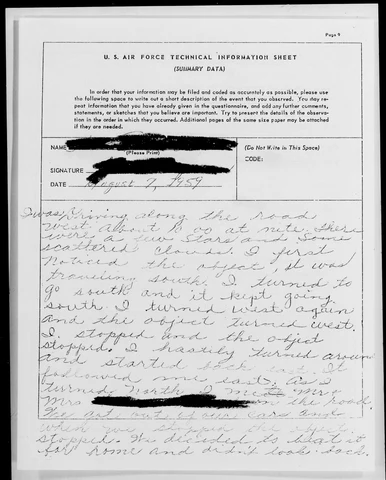 Page 9
U. S. AIR FORCE TECHNICAL INFORMATION SHEET
(SUMMARY DATA)
In order that your information may be filed and coded as accurately as possible, please use
the following space to write out a short description of the event that you observed. You may re-
peat information that you have already given in the questionnaire, and add any further comments,
statements, or sketches that you believe are important. Try to present the details of the observa-
tion in the order in which they occurred. Additional pages of the same size paper may be attached
if they are needed.
NAME
(Please Print)
SIGNATURE
DATE August 7, 1959
(Do Not Write in This Space)
CODE:
I was driving along the road
west about 10 00 at nite. there
were a few stars and some
scattered clouds. I first
noticed the object, it was
traveling south. I turned to
go south and it kept going
south I turned west again
and the object turned west.
I stopped and the object
stopped. I hastily turned aroun
and started back east. It
followed me east, as I
turned North I met Mr &
Mrs on the road.
We got out of our cars and
when we stopped the object
stopped. We decided to beat it
for home and didn't look back.